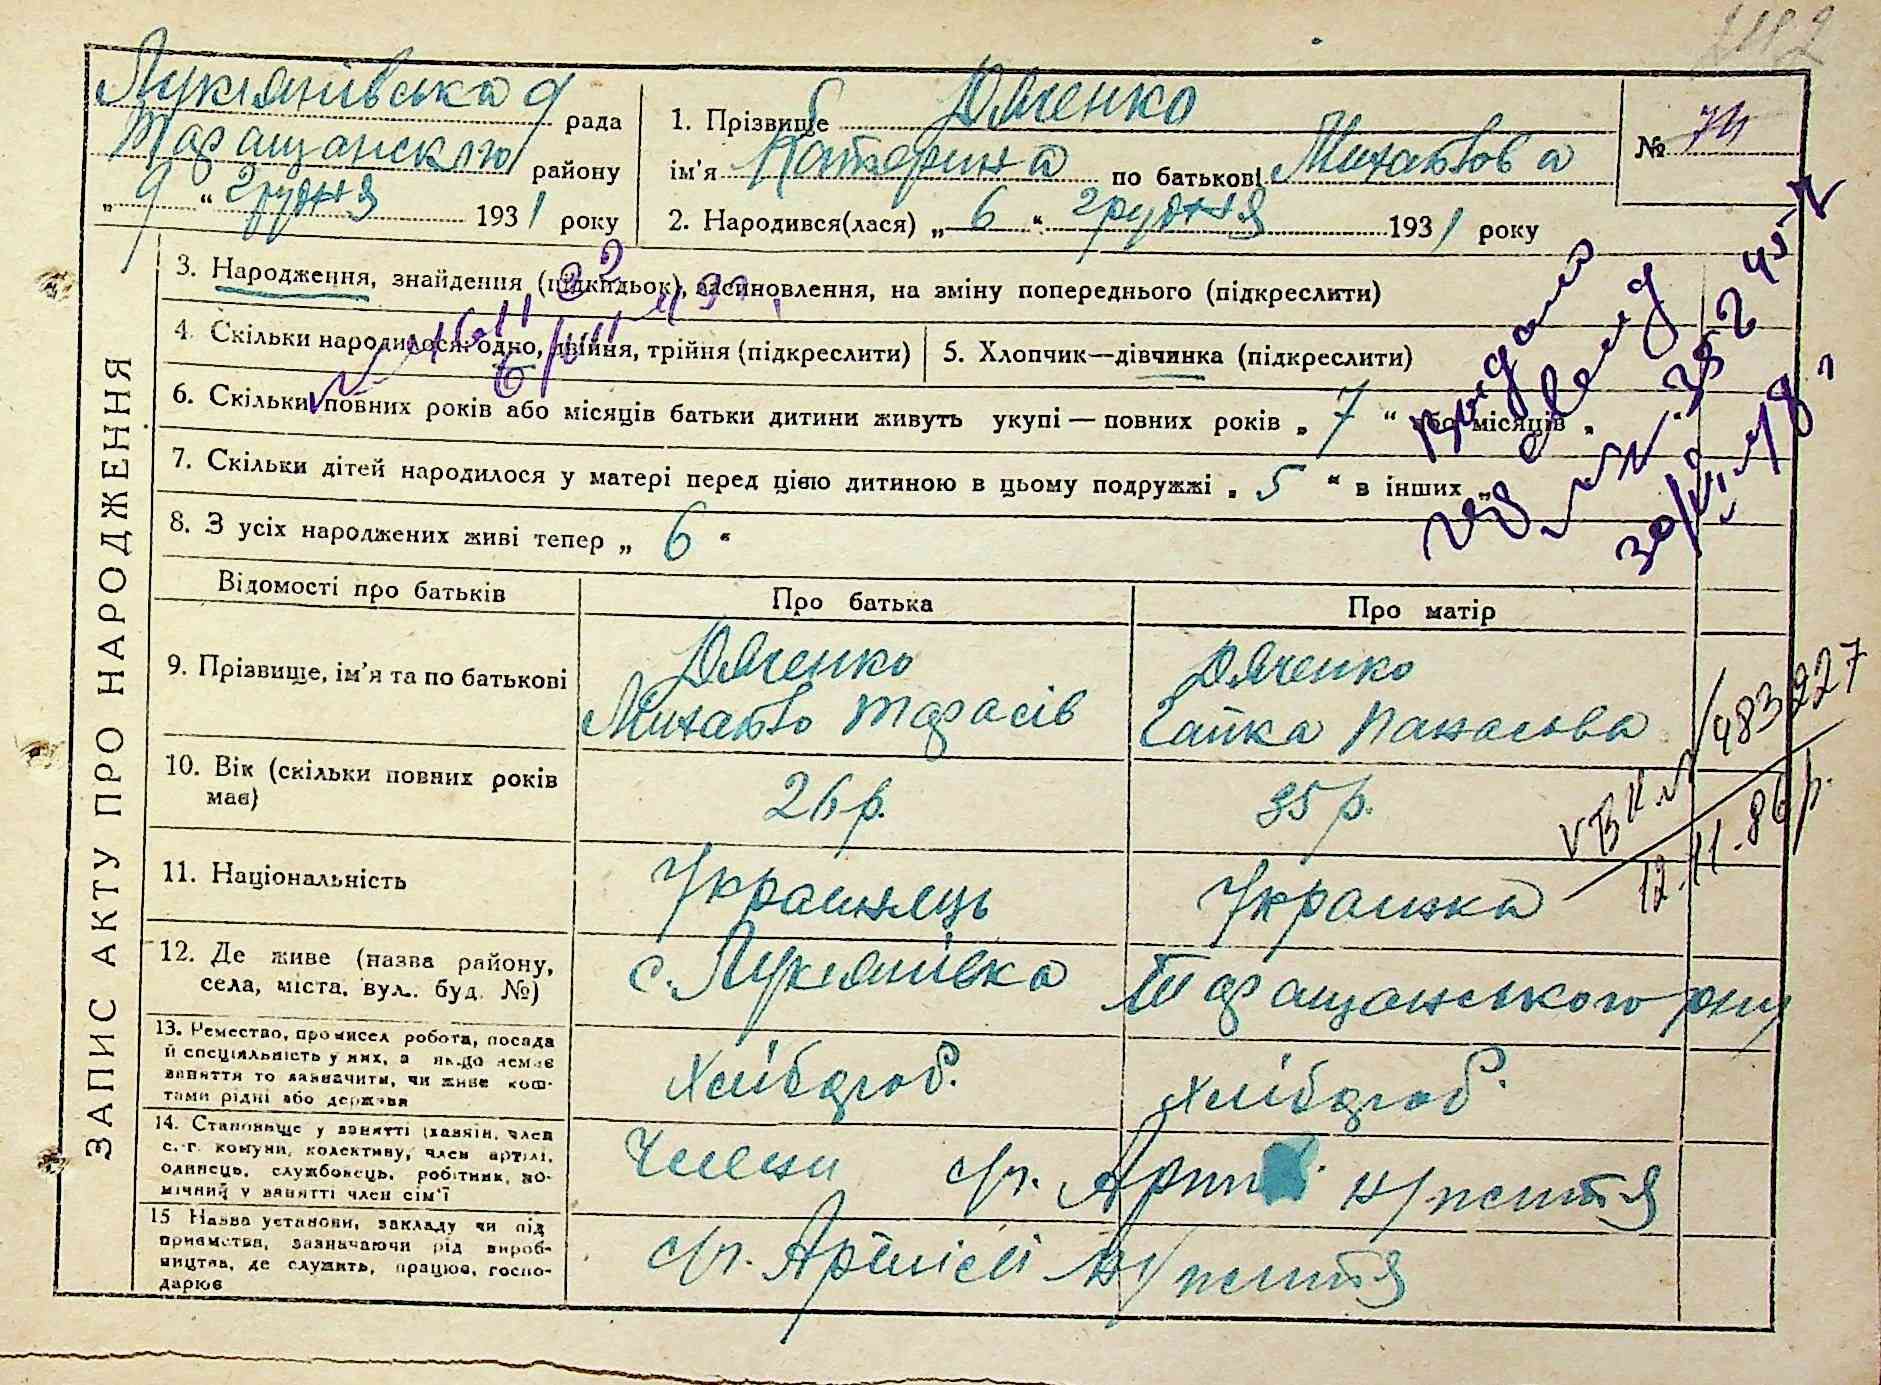 Лукянівська рада
Таращанського району
„9“ Грудня 1931 року
1. Прізвище Дяченко
ім'я Катерина по батькові Михайлова
2. Народився(лася) „6“ Грудня 1931 року
№ 74
ЗАПИС АКТУ ПРО НАРОДЖЕННЯ
3. Народження, знайдення (підкидьок), засиновлення, на зміну попереднього (підкреслити)
4. Скільки народилося: одно, двійня, трійня (підкреслити)
5. Хлопчик—дівчинка (підкреслити)
6. Скільки повних років або місяців батьки дитини живуть укупі — повних років „7“ або місяців „
7. Скільки дітей народилося у матері перед цією дитиною в цьому подружжі „5“ в інших „
8. З усіх народжених живі тепер „6“
Відомості про батьків
Про батька
Про матір
9. Прізвище, ім'я та по батькові
Дяченко
Михайло Тарасів
Дяченко
Гапка Панасова
10. Вік (скільки повних років має)
26 р.
35 р.
11. Національність
Українець
Українка
12. Де живе (назва району,
села, міста, вул. буд. №)
с. Лукянівка Таращанського р-ну
13. Ремество, промисел робота, посада
й спеціяльність у них, а якщо немає
заняття то зазначити, чи живе кош-
тами рідні або держава
Хлібороб.
Хлібороб.
14. Становище у занятті (хазяїн, член
с.-г. комуни, колективу, член артілі,
одинець, службовець, робітник, по-
мічний у занятті член сім'ї
Члени с/г. Артілі н/життя
15 Назва установи, закладу чи під
приємства, зазначаючи рід вироб-
ництва, де служить, працює, госпо-
дарює
с/г. Артілі н/життя
483227
12.11.86 р.